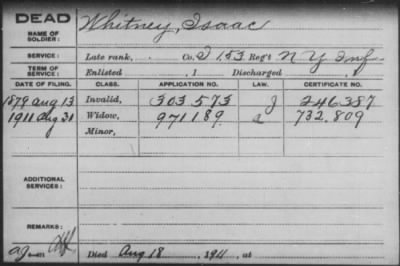 DEAD
NAME OF SOLDIER: Whitney, Isaac
SERVICE: Late rank, Co. D 153 Reg't N Y Inf
TERM OF SERVICE: Enlisted , 1 Discharged , 1
DATE OF FILING. CLASS. APPLICATION NO. LAW. CERTIFICATE NO.
1879 Aug 13 Invalid, 303 573 J 246.387
1911 Aug 31 Widow, 971189. a 732,809
Minor,
ADDITIONAL SERVICES:
REMARKS:
Died Aug 18, 1911, at